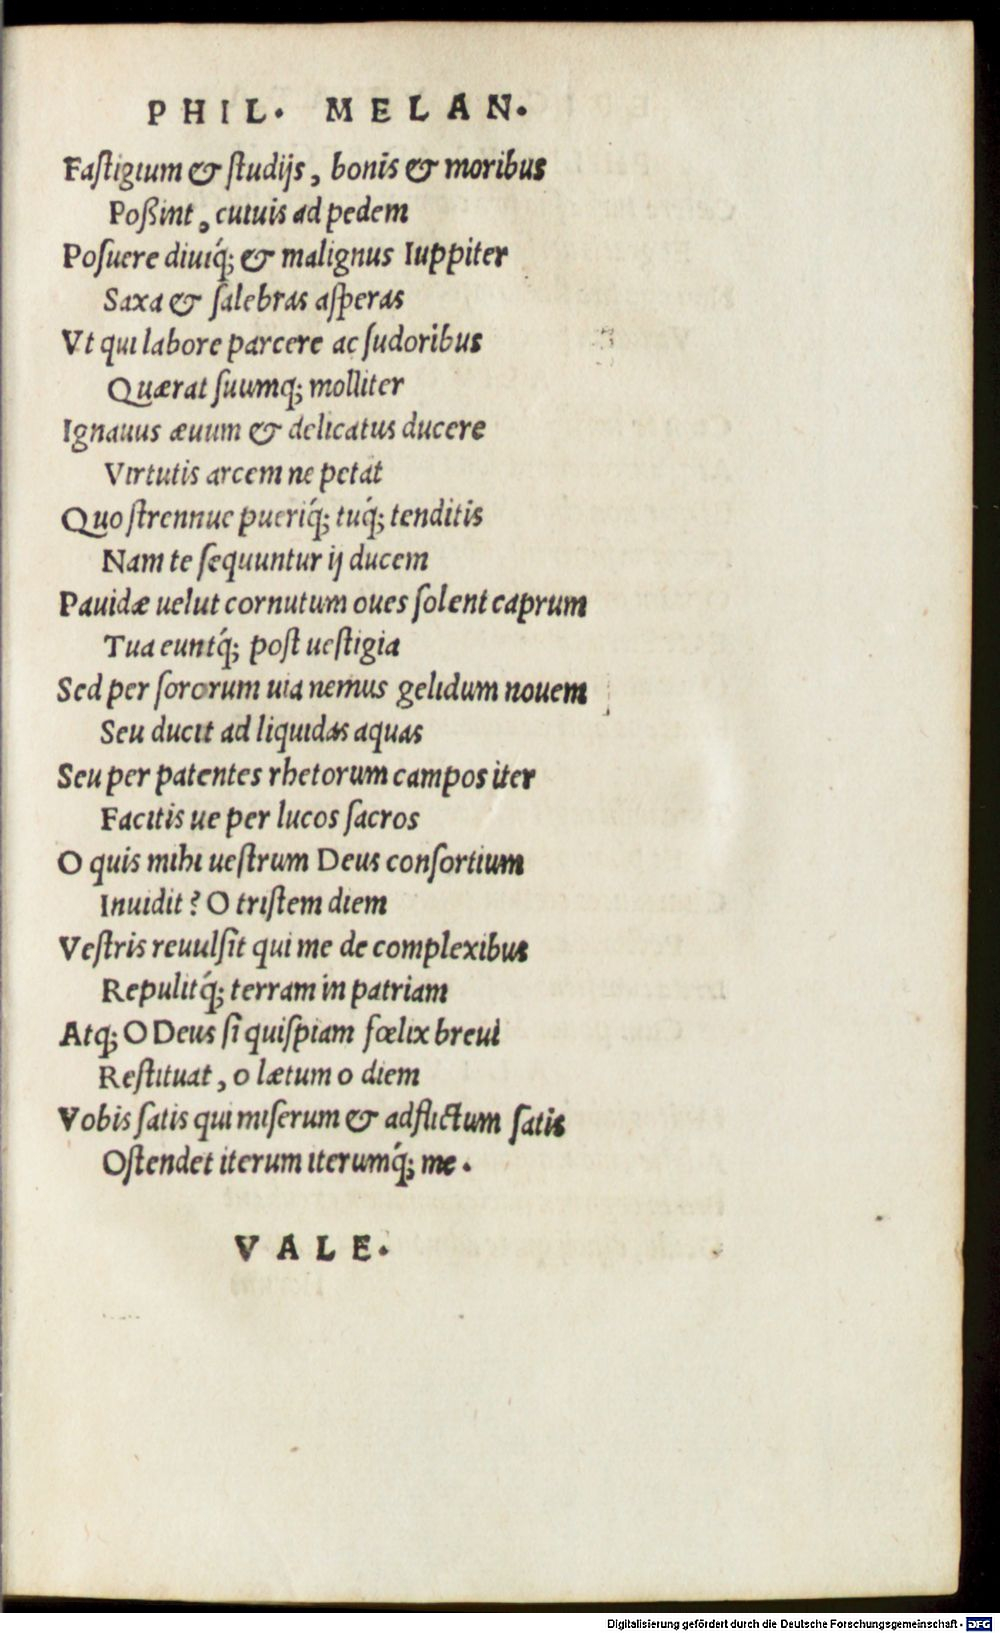 PHIL. MELAN.
Faſtigium & ſtudijs, bonis & moribus
Poßint, cuiuis ad pedem
Poſuere diuiq́; & malignus Iuppiter
Saxa & ſalebras aſperas
Vt qui labore parcere ac ſudoribus
Quærat ſuumq; molliter
Ignauus æuum & delicatus ducere
Virtutis arcem ne petat
Quo ſtrennue pueriq́; tuq́; tenditis
Nam te ſequuntur ij ducem
Pauidæ uelut cornutum oues ſolent caprum
Tua euntq́; poſt ueſtigia
Sed per ſororum uia nemus gelidum nouem
Seu ducit ad liquidas aquas
Seu per patentes rhetorum campos iter
Facitis ue per lucos ſacros
O quis mihi ueſtrum Deus conſortium
Inuidit? O triſtem diem
Veſtris reuulſit qui me de complexibus
Repulitq́; terram in patriam
Atq; O Deus ſi quiſpiam fœlix breui
Reſtituat, o lætum o diem
Vobis ſatis qui miſerum & adflictum ſatis
Oſtendet iterum iterumq́; me.
VALE.
Digitalisierung gefördert durch die Deutsche Forschungsgemeinschaft - DFG